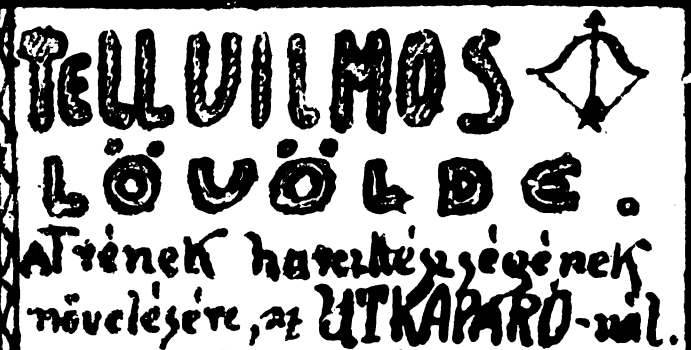 TELL VILMOS
LÖVÖLDE.
A Trének harczkészségének
növelésére, az UTKAPARÓ-nál.